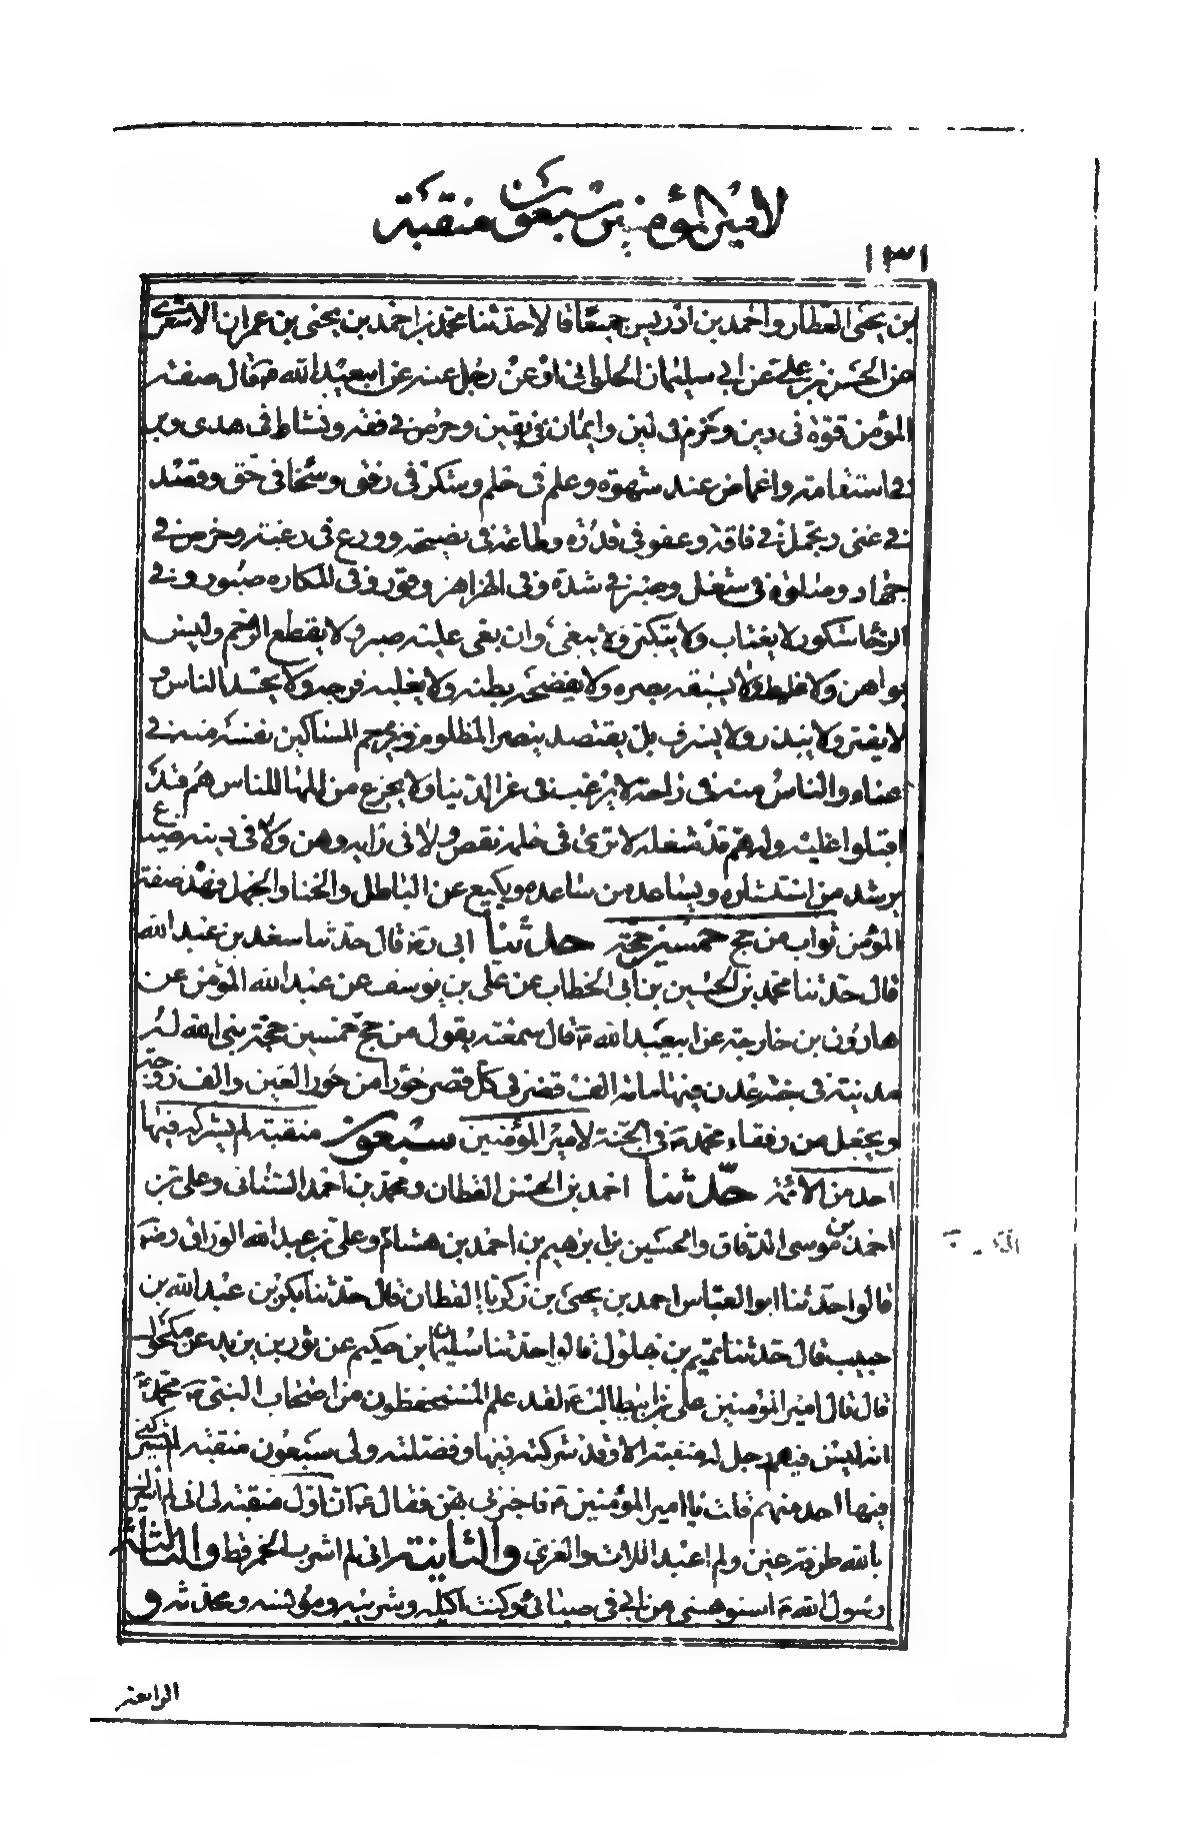 لامير المؤمنين سبعون منقبة
١٣١
بن يحيى العطار واحمد بن ادريس جميعا قالا حدثنا محمد بن احمد بن يحيى بن عمران الاشعرى
عن الحسن بن على عن ابى سليمان الحلوانى او عن رجل عنه عن ابيعبد الله ع قال صفة
المؤمن قوة فى دين وحزم فى لين وايمان فى يقين وحرص فى فقه ونشاط فى هدى وبر
فى استقامة واغماض عند شهوة وعلم فى حلم وشكر فى رفق وسخا فى حق وقصد
فى غنى وتجمل فى فاقة وعفو فى قدرة وطاعة فى نصيحة وورع فى رغبة وحرص فى
جهاد وصلوة فى شغل وصبر فى شدة وفى الهزاهز وقور وفى المكاره صبور وفى
الرخا شكور لا يغتاب ولا يتكبر ولا يبغى وان بغى عليه صبر ولا يقطع الرحم وليس
بواهن ولا فظ ولا يسبقه بصره ولا يفضحه بطنه ولا يغلبه فرجه ولا يحسد الناس و
لا يفتر ولا يبذر ولا يسرف بل يقتصد ينصر المظلوم ويرحم المساكين نفسه منه فى
عناء والناس منه فى راحة لا يرغب فى عز الدنيا ولا يجزع من المها للناس هم قد
اقبلوا عليه وله هم قد شغله لا ترى فى حلمه نقص ولا فى رايه وهن ولا فى دينه ضياع
يرشد من استشاره ويساعد من ساعده ويكيع عن الباطل والخنا والجهل فهذه صفة
المؤمن ثواب من حج خمسين حجة حدثنا ابى ره قال حدثنا سعد بن عبد الله
قال حدثنا محمد بن الحسين بن ابى الخطاب عن على بن يوسف عن عبد الله المؤمن عن
هارون بن خارجة عن ابيعبد الله ع قال سمعته يقول من حج خمسين حجة بنى الله له
مدينة فى جنة عدن فيها مائة الف قصر فى كل قصر حورا من حور العين والف زوجة
ويجعل من رفقاء محمد ص فى الجنة لامير المؤمنين سبعون منقبة لم يشركه فيها
احد من الائمة حدثنا احمد بن الحسن القطان ومحمد بن احمد السنانى وعلى بن
احمد بن موسى الدقاق والحسين بن ابرهيم بن احمد بن هشام وعلى بن عبد الله الوراق رضه
قالوا حدثنا ابو العباس احمد بن يحيى بن زكريا القطان قال حدثنا بكر بن عبد الله بن
حبيب قال حدثنا تميم بن بهلول قالوا حدثنا سليمان بن حكيم عن ثور بن يزيد عن مكحول
قال قال امير المؤمنين على بن ابيطالب ع لقد علم المستحفظون من اصحاب النبى ص محمد
انه ليس فيهم رجل له منقبة الا وقد شركته فيها وفضلته ولى سبعون منقبة لم يشركنى
فيها احد منهم قلت يا امير المؤمنين ع فاخبرنى بهن فقال ع ان اول منقبة لى انى لم اشرك
بالله طرفة عين ولم اعبد اللات والعزى والثانية انى لم اشرب الخمر قط والثالثة
رسول الله ص استوهبنى من ابى فى صبائى وكنت اكيله وشريبه ومؤنسه ومحدثه و
الرابعة